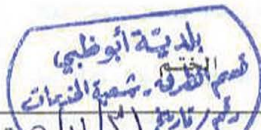 بلدية أبوظبي
الختم
قسم الطرق - شعبة الخدمات
رقم / تاريخ